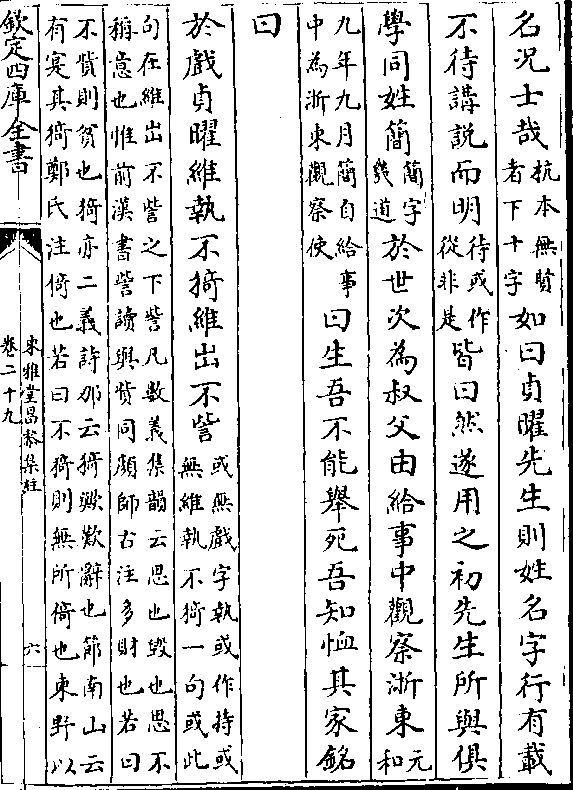 名况士哉杭本無賢者下十字如曰貞曜先生則姓名字行有載
不待講說而明待或作從非是皆曰然遂用之初先生所與俱
學同姓簡簡字幾道於世次為叔父由給事中觀察浙東元和
九年九月簡自給事中為浙東觀察使曰生吾不能舉死吾知恤其家銘
曰
於戲貞曜維執不猗維出不訾或無戲字執或作持或無維執不猗一句或此
句在維出不訾之下訾凡數義集韻云思也毁也思不
稱意也惟前漢書訾讀與貲同顔師古注多財也若曰
不貲則貧也猗亦二義詩那云猗歟歎辭也節南山云
有寔其猗鄭氏注倚也若曰不猗則無所倚也東野以
欽定四庫全書
東雅堂昌黎集註
卷二十九
六